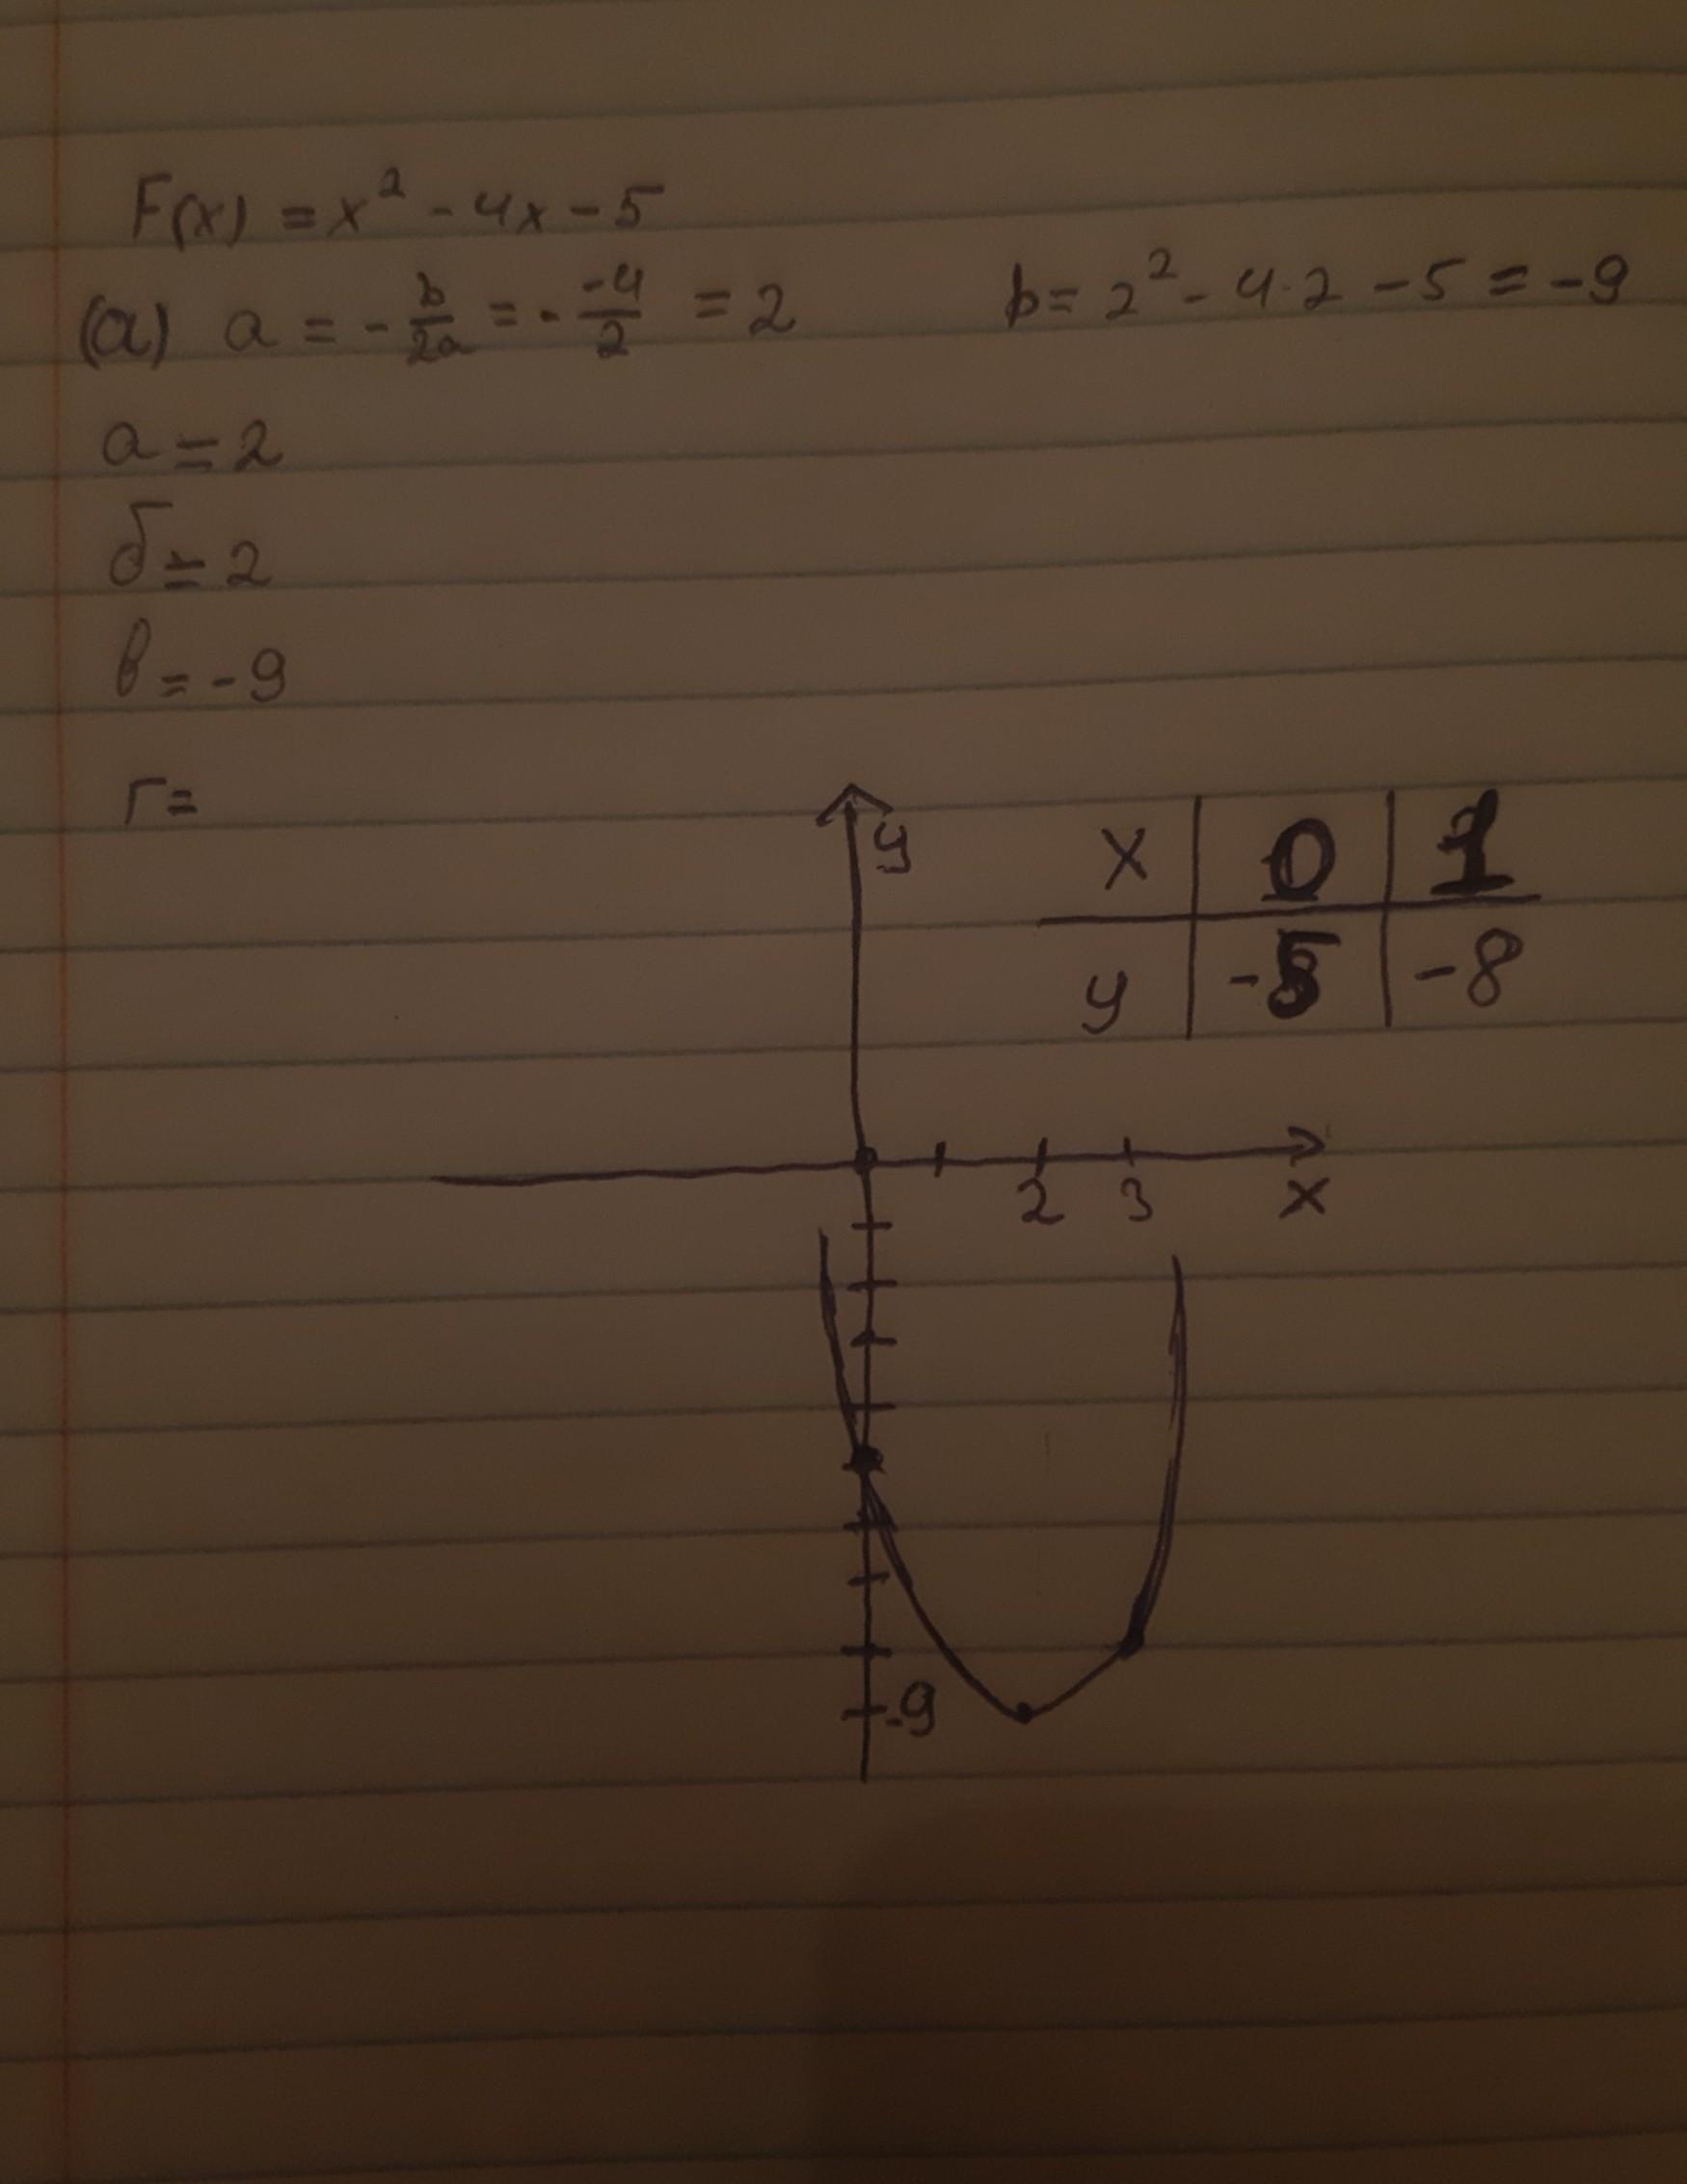 F(x) = x² - 4x - 5
(a) a = -b/2a = - -4/2 = 2 b = 2² - 4·2 - 5 = -9
a = 2
б = 2
в = -9
г =
y
x 0 1
y -5 -8
2 3 x
-9